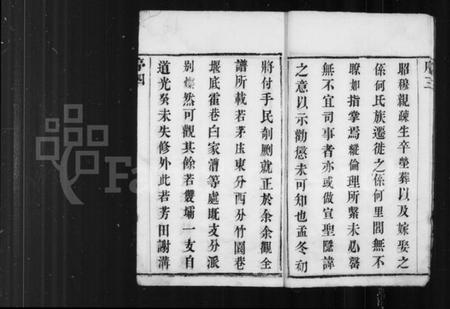 序三
昭穆親疎生卒塋葬以及嫁娶之
係何民族遷徙之係何里閭無不
瞭如指掌焉縱倫理所繫未必罄
無不宜司事者亦或做宣聖隱諱
之意以示勸懲未可知也孟冬初
將付手民剞劂就正於余余觀全
譜所載若茅庄東分西分竹園巷
堰底霍巷白家漕等處既支分派
別燦然可觀其餘若雙塘一支自
道光癸未失修外此若芳田謝溝
序四